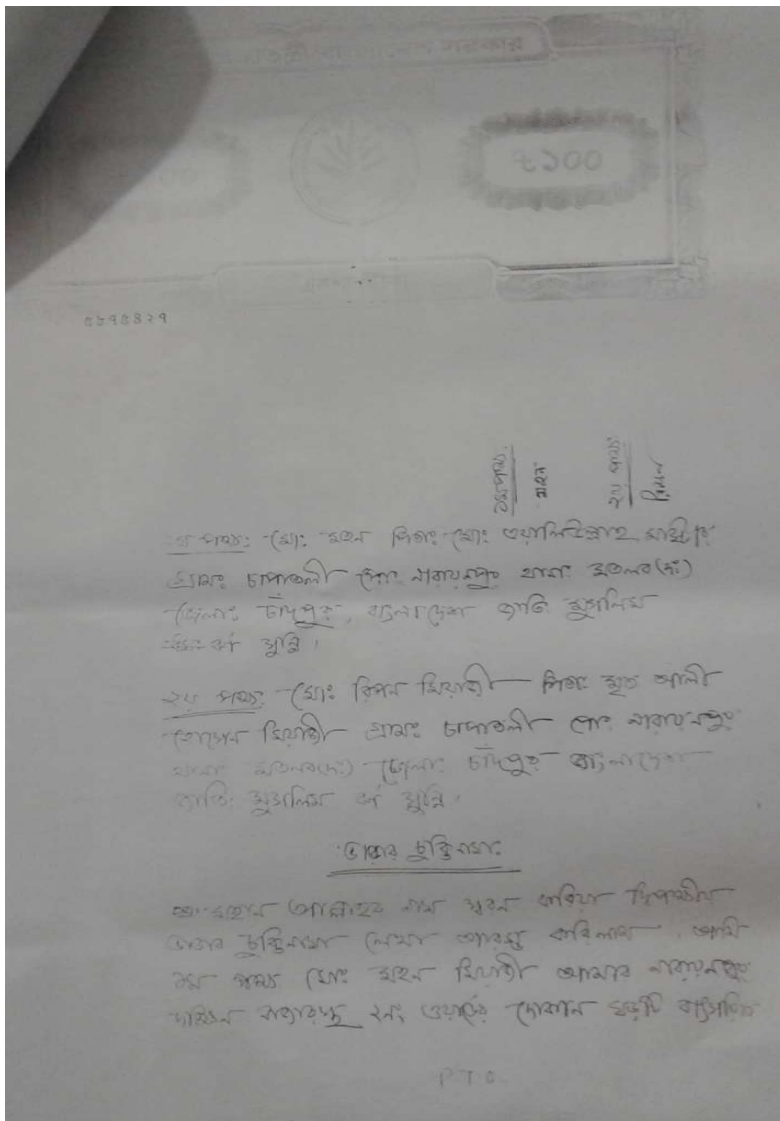 ৳১০০
৫৮৭৫৪২৭
১ম পক্ষ
২য় পক্ষ
রিপন
১ম পক্ষ: মোঃ পিতা: মোঃ ওয়ালিউল্লাহ
গ্রামঃ চাপাতলী পোঃ নারায়নপুর থানাঃ মতলব(দঃ)
জেলাঃ চাঁদপুর, বাংলাদেশ জাতি মুসলিম
ধর্ম সুন্নি।
২য় পক্ষ: মোঃ রিপন মিয়াজী পিতাঃ মৃত আলী
হোসেন মিয়াজী গ্রামঃ চাপাতলী পোঃ নারায়নপুর
থানাঃ মতলব(দঃ) জেলাঃ চাঁদপুর বাংলাদেশ
জাতিঃ মুসলিম ধর্ম সুন্নি।
ভাড়ার চুক্তিনামা
মহান আল্লাহর নাম স্মরন করিয়া দ্বিপাক্ষীয়
ভাড়ার চুক্তিনামা লেখা আরম্ভ করিলাম। আমি
১ম পক্ষ মোঃ মিয়াজী আমার নারায়নপুর
দক্ষিন বাজারস্থ ২নং ওয়ার্ডের দোকান ঘরটি
P T O